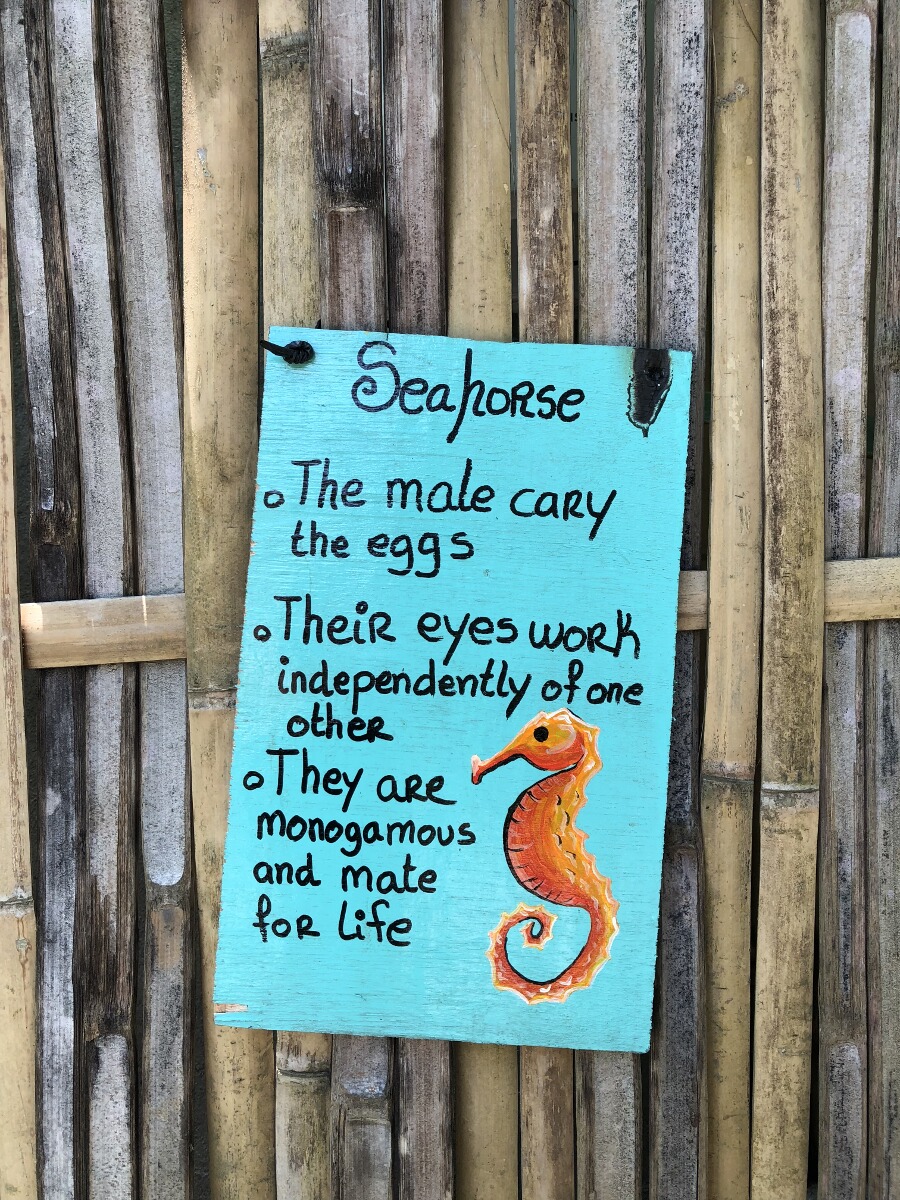 Seahorse
The male cary
the eggs
Their eyes work
independently of one
other
They are
monogamous
and mate
for life